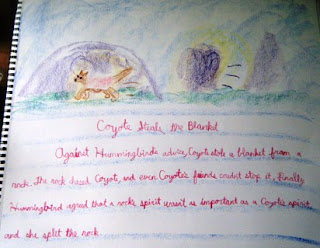 Coyote Steals the Blanket
Against Hummingbird's advice, Coyote stole a blanket from a
rock. The rock chased Coyote, and even Coyote's friends couldn't stop it. Finally
Hummingbird agreed that a rock's spirit wasn't as important as a Coyote's spirit,
and she split the rock.